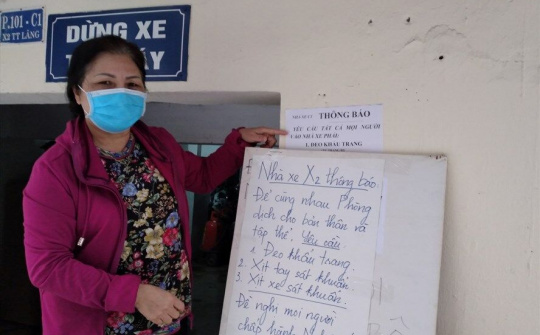 P.101 - C1
X2 TT LÁNG
DỪNG XE
THÔNG BÁO
YÊU CẦU TẤT CẢ MỌI NGƯỜI
VÀO NHÀ XE PHẢI:
1. ĐEO KHẨU TRANG
Nhà xe X2 thông báo
Để cùng nhau Phòng
dịch cho bản thân và
tập thể. Yêu cầu.
1. Đeo khẩu trang.
2. Xịt tay sát khuẩn.
3. Xịt xe sát khuẩn.
Đề nghị mọi người
chấp hành